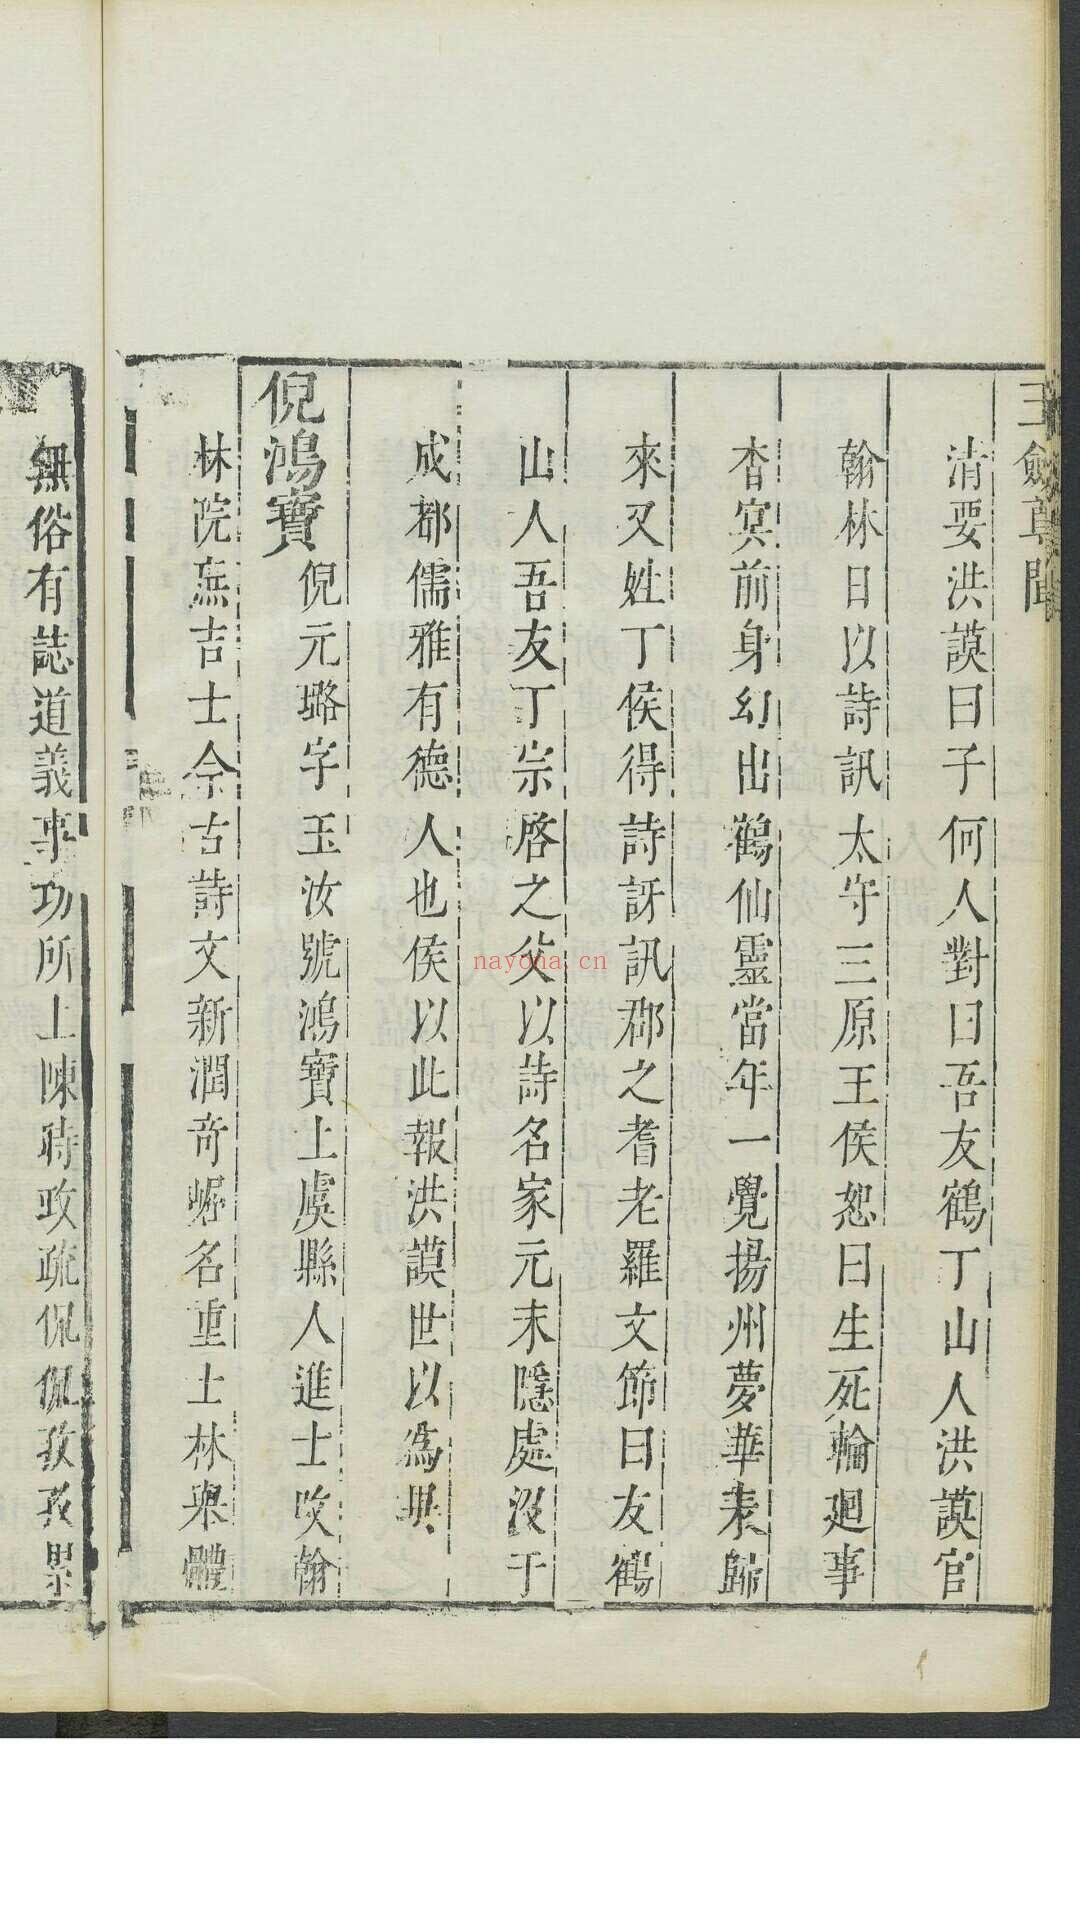 清要洪謨曰子何人對曰吾友鶴丁山人洪謨官
翰林日以詩訊太守三原王侯恕曰生死輪廻事
杳冥前身幻出鶴仙靈當年一覺揚州夢華表歸
來又姓丁侯得詩訝訊郡之耆老羅文節曰友鶴
山人吾友丁宗啓之父以詩名家元末隱處沒于
成都儒雅有德人也侯以此報洪謨世以為異
倪鴻寶倪元璐字玉汝號鴻寶上虞縣人進士改翰
林院庶吉士今古詩文新潤奇崛名重士林與體
無俗有誌道義事功所上陳時政疏侃侃孜孜累
nayona.cn